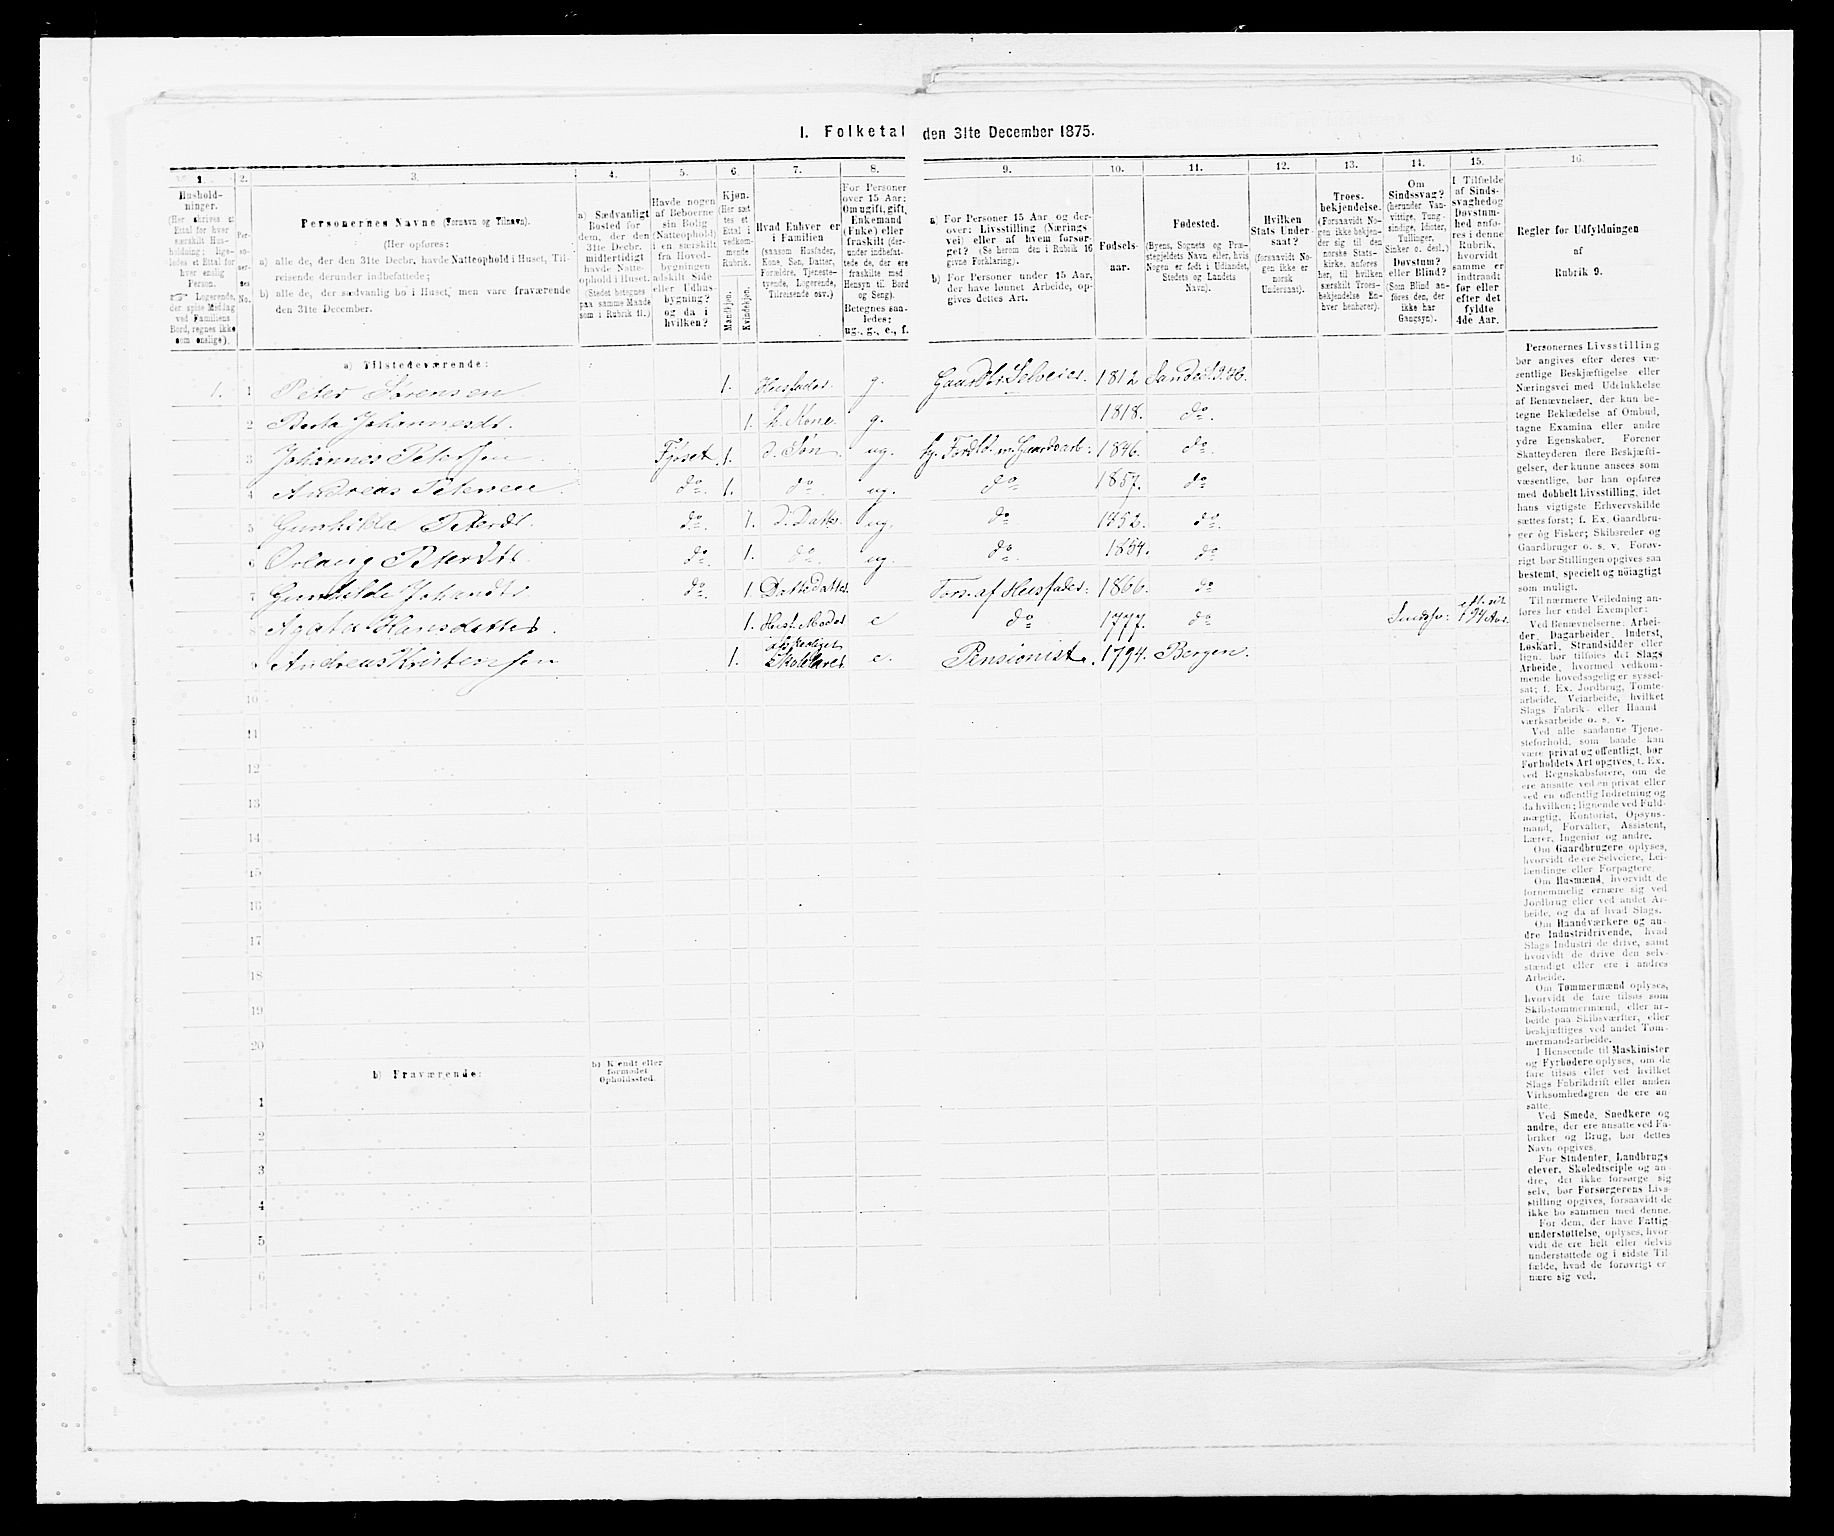 I. Folketal den 31te December 1875.
1. 2. 3. 4. 5. 6. 7. 8. 9. 10. 11. 12. 13. 14. 15. 16.
Husholdninger.
(Her skrives et Ettal for hver særskilt Husholdning; ligeledes et Ettal for hver enslig Person.
☞ Logerende, der spise Middag ved Familiens Bord, regnes ikke som enslige).
Personernes No.
Personernes Navne (Fornavn og Tilnavn).
(Her opføres:
a) alle de, der den 31te Decbr. havde Natteophold i Huset, Tilreisende derunder indbefattede;
b) alle de, der sædvanlig bo i Huset, men vare fraværende den 31te December.
a) Sædvanligt Bosted for dem, der den 31te Decbr. midlertidigt havde Natteophold i Huset. (Stedet betegnes paa samme Maade som i Rubrik 11.)
Havde nogen af Beboerne sin Bolig (Natteophold) i en særskilt fra Hovedbygningen adskilt Side eller Udhusbygning? og da i hvilken?
Kjøn.
(Her sættes et Ettal i vedkommende Rubrik.
Mandkjøn. Kvindekjøn.
Hvad Enhver er i Familien
(saasom Husfader, Kone, Søn, Datter, Forældre, Tjenestetyende, Logerende, Tilreisende osv.)
For Personer over 15 Aar: Om ugift, gift, Enkemand (Enke) eller fraskilt (derunder indbefattede de, der ere fraskilte med Hensyn til Bord og Seng). Betegnes saaledes: ug., g., e., f.
a) For Personer 15 Aar og derover: Livsstilling (Næringsvei) eller af hvem forsørget? (Se herom den i Rubrik 16 givne Forklaring).
b) For Personer under 15 Aar, der have lønnet Arbeide, opgives dettes Art.
Fødselsaar.
Fødested.
(Byens, Sognets og Præstegjeldets Navn eller, hvis Nogen er født i Udlandet, Stedets og Landets Navn).
Hvilken Stats Undersaat?
(forsaavidt Nogen ikke er norsk Undersaat).
Troesbekjendelse.
(Forsaavidt Nogen ikke bekjender sig til den norske Statskirke, anføres her, til hvilken særskilt Troesbekjendelse Enhver henhører).
Om Sindssvag? (herunder Vanvittige, Tungsindige, Idioter, Tullinger, Sinker o. desl.) Døvstum? eller Blind? (Som Blind anføres den, der ikke har Gangsyn).
I Tilfælde af Sindssvaghed og Døvstumhed anføres i denne Rubrik, hvorvidt samme er indtraadt før eller efter det fyldte 4de Aar.
Regler for Udfyldningen af Rubrik 9.
a) Tilstedeværende:
1. 1 Peter Sørensen. 1. Husfader g. Gaardbr. Selveier. 1812
2 Berta Johannesdt. 1. h. Kone g. 1818. do
3 Johannes Petersen Fjøset 1. d. Søn ug. 1846. do
4 Andreas Petersen do. 1. do. ug. do 1857. do
5 Gunhilda Petersdt. do. 1. d. Datter ug. do 1852. do.
6 Petersdt. do. 1. do. ug. do. 1854. do
7 Gunhilde Johandtr do. 1. DatterDatter Fors. af Husfader: 1866. do
8 Agata Hansdatter. 1. Husf. Moder e do. 1777. do Sindssv:
9 Andreas Kristensen 1. e. Pensionist. 1794. Bergen.
10
11
12
13
14
15
16
17
18
19
20
b) Fraværende:
b) Kjendt eller formodet Opholdssted.
1
2
3
4
5
6
Personernes Livsstilling
bør angives efter deres væ-
sentlige Beskjæftigelse eller
Næringsvei med Udelukkelse
af Benævnelser, der kun be-
tegne Beklædelse af Ombud,
tagne Examina eller andre
ydre Egenskaber. Forener
Skatteyderen flere Beskjæfti-
gelser, der kunne ansees som
væsentlige, bør han opføres
med dobbelt Livsstilling, idet
hans vigtigste Erhvervskilde
sættes først; f. Ex. Gaardbru-
ger og Fisker; Skibsreder og
Gaardbruger o. s. v. Forøv-
rigt bør Stillingen opgives saa
bestemt, specielt og nøiagtigt
som muligt.
Til nærmere Veiledning an-
føres her endel Exempler:
Ved Benævnelserne: Arbei-
der, Dagarbeider, Inderst,
Løskarl, Strandsidder eller
lign. bør tilføies det Slags
Arbeide, hvormed vedkom-
mende hovedsagelig er syssel-
sat; f. Ex. Jordbrug, Tomte-
arbeide, Veiarbeide, hvilket
Slags Fabrik- eller Haand-
værksarbeide o. s. v.
Ved alle saadanne Tjene-
steforhold, som baade kan
være privat og offentligt, bør
Forholdets Art opgives, f. Ex.
ved Regnskabsførere, om de
ere ansatte ved en privat eller
ved en offentlig Indretning og
da hvilken; lignende ved Fuld-
mægtig, Kontorist, Opsyns-
mand, Forvalter, Assistent,
Lærer, Ingeniør og andre.
Om Gaardbrugere oplyses,
hvorvidt de ere Selveiere, Lei-
lændinge eller Forpagtere
Om Husmænd, hvorvidt de
fornemmelig ernære sig ved
Jordbrug eller ved andet Ar-
beide, og da af hvad Slags.
Om Haandværkere og an-
dre Industridrivende, hvad
Slags Industri de drive, samt
hvorvidt de drive den selv-
stændigt eller ere i andres
Arbeide.
Om Tømmermænd oplyses,
hvorvidt de fare tilsøs som
Skibstømmermænd, eller ar-
beide paa Skibsværfter, eller
beskjæftiges ved andet Tøm-
mermandsarbeide.
I Henseende til Maskinister
og Fyrbødere oplyses, om de
fare tilsøs eller ved hvilket
Slags Fabrikdrift eller anden
Virksomhedsgren de ere an-
satte.
Ved Smede, Snedkere og
andre, der ere ansatte ved Fa-
briker og Brug, bør dettes
Navn opgives.
For Studenter, Landbrugs-
elever, Skoledisciple og an-
dre, der ikke forsørge sig
selv, bør Forsørgerens Livs-
stilling opgives, forsaavidt de
ikke bo sammen med denne.
For dem, der have Fattig-
understøttelse, oplyses, hvor-
vidt de ere helt eller delvis
understøttede og i sidste Til-
fælde, hvad de forøvrigt er-
nære sig ved.